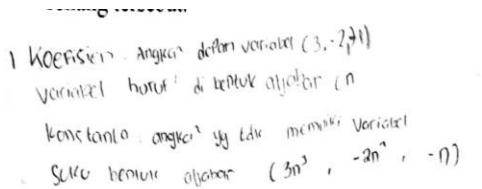 1 Koefisien Angka² depan variabel (3, -2, -1)
Variabel huruf² di bentuk aljabar (n
Konstanta angka² yg tdk memiliki Variabel
Suku bentuk aljabar (3n³, -2n², -n)